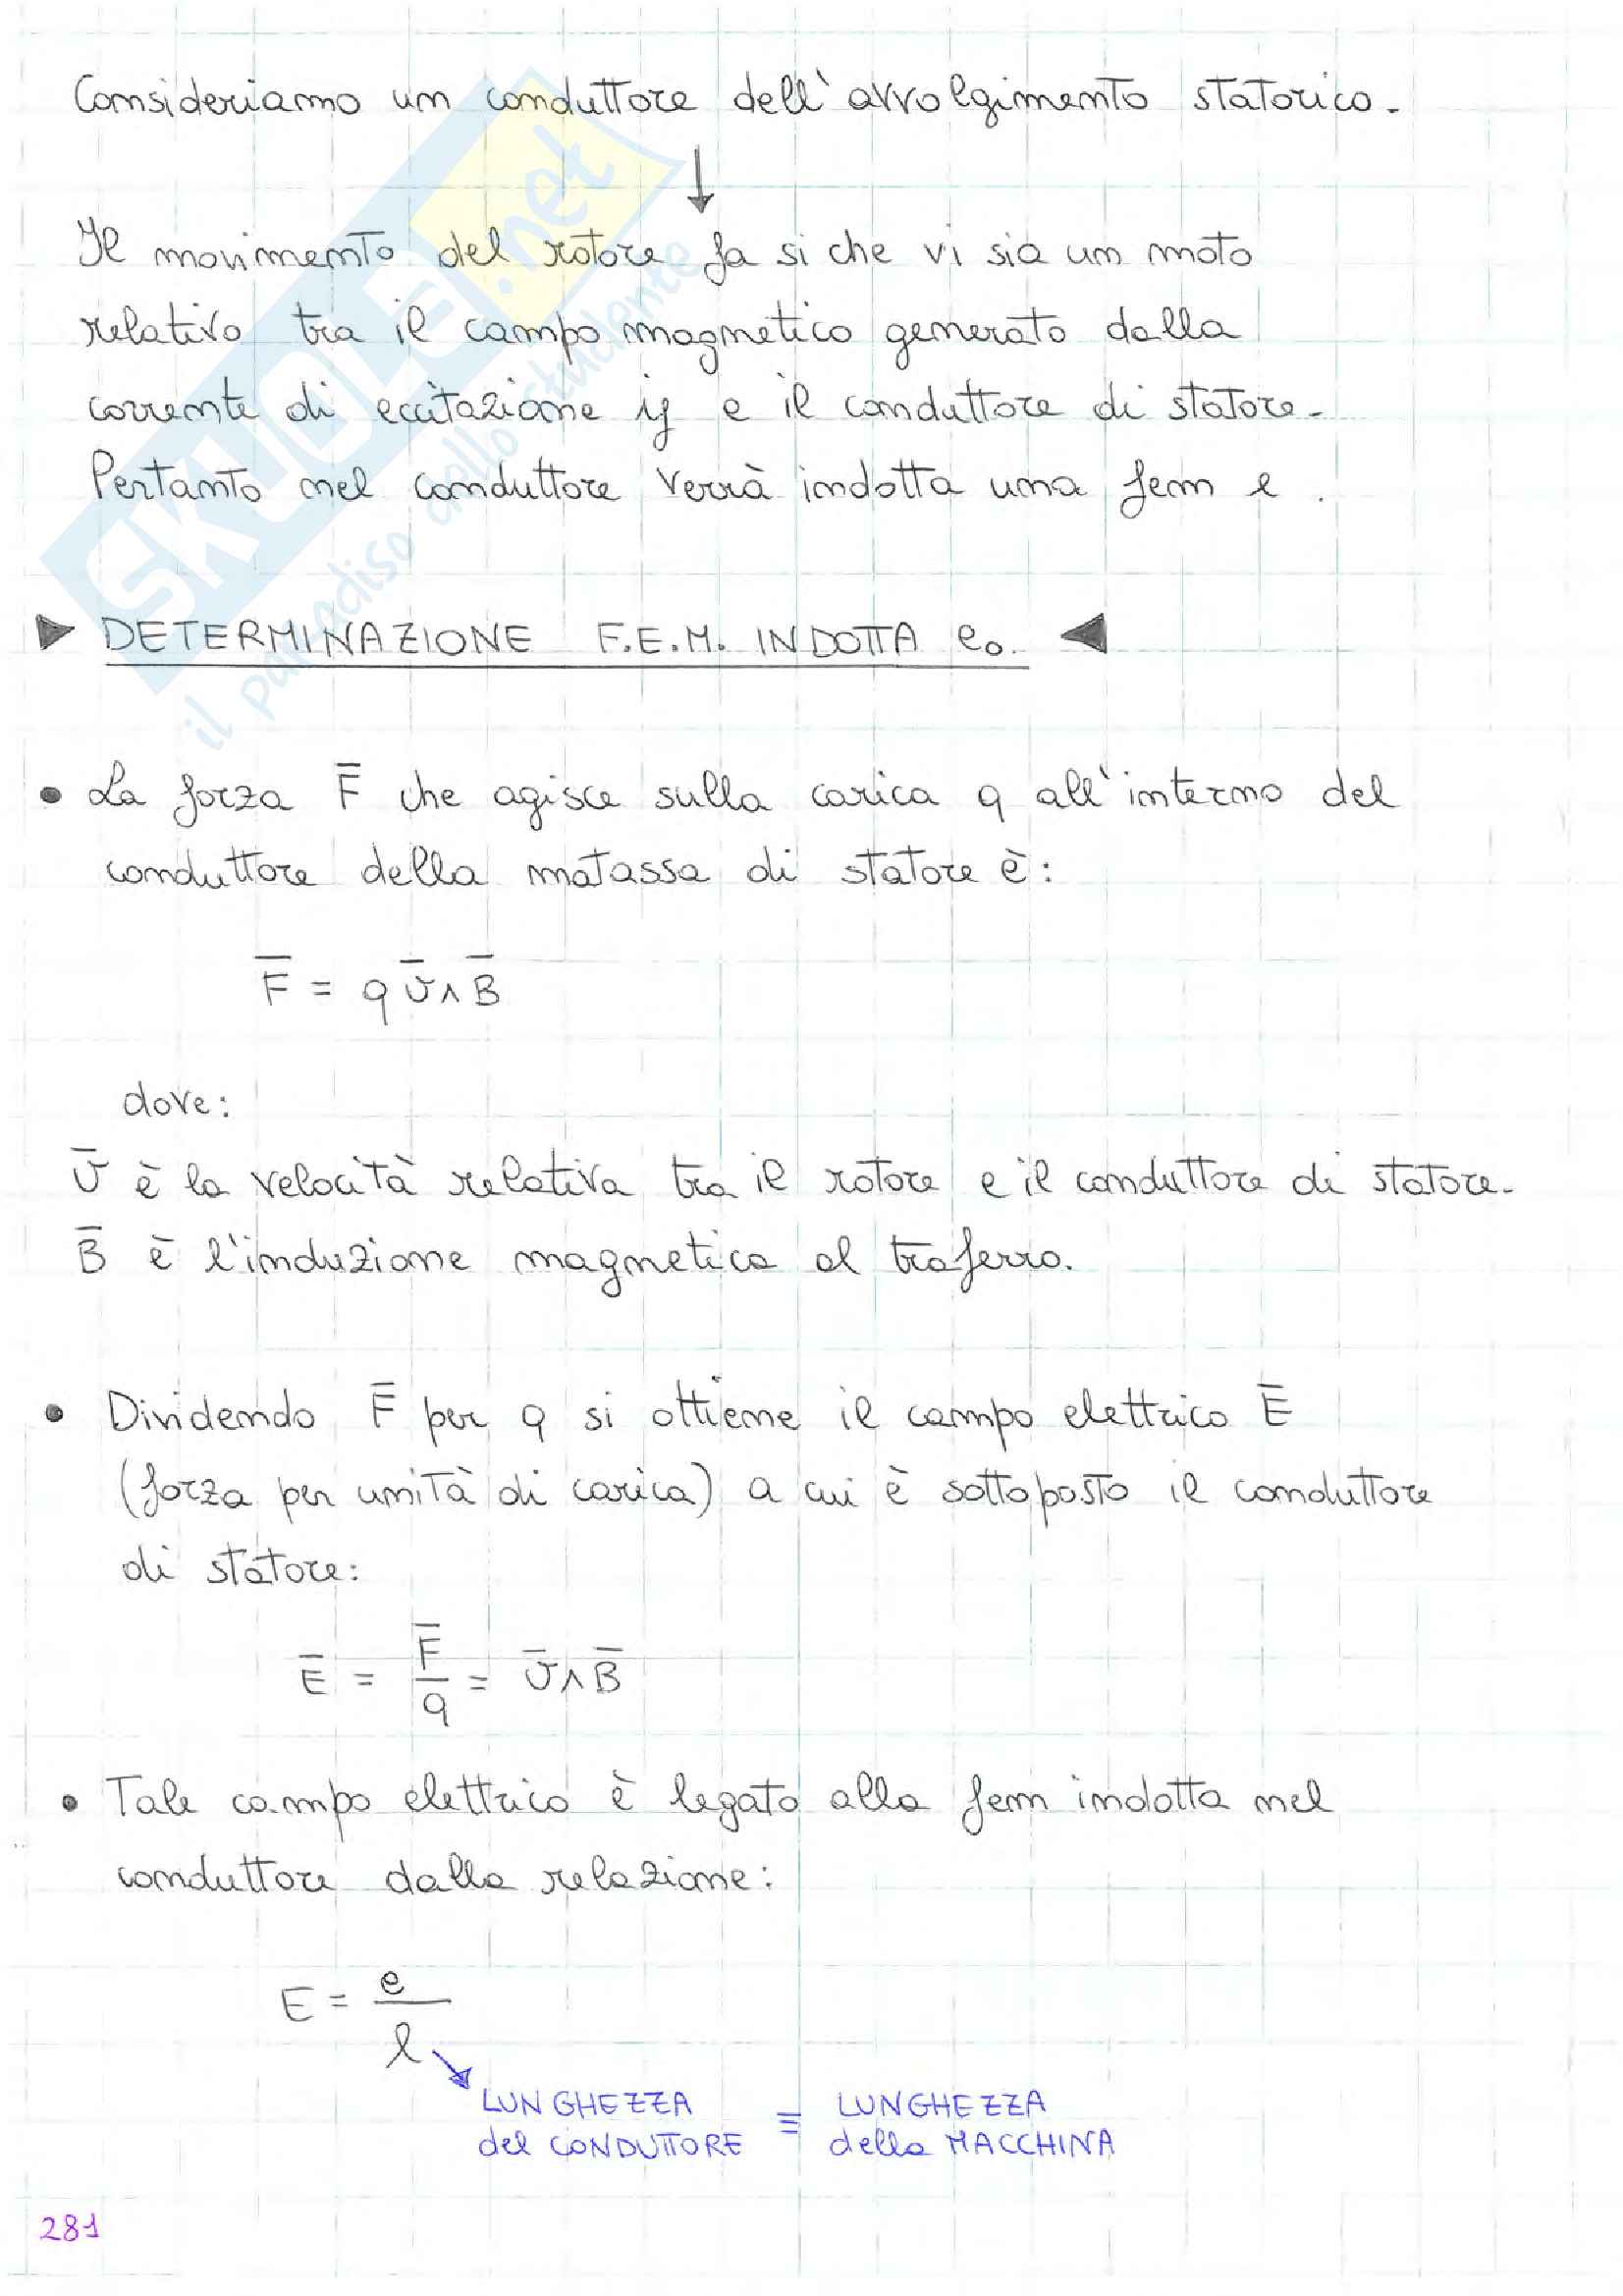 Consideriamo un conduttore dell'avvolgimento statorico.
↓
Il movimento del rotore fa si che vi sia un moto
relativo tra il campo magnetico generato dalla
corrente di eccitazione if e il conduttore di statore.
Pertanto nel conduttore verrà indotta una fem e.
► DETERMINAZIONE F.E.M. INDOTTA e₀. ◄
• La forza F̅ che agisce sulla carica q all'interno del
conduttore della matassa di statore è:
F̅ = q v̅ ∧ B̅
dove:
v̅ è la velocità relativa tra il rotore e il conduttore di statore.
B̅ è l'induzione magnetica al traferro.
• Dividendo F̅ per q si ottiene il campo elettrico E̅
(forza per unità di carica) a cui è sottoposto il conduttore
di statore:
E̅ = F̅/q = v̅ ∧ B̅
• Tale campo elettrico è legato alla fem indotta nel
conduttore dalla relazione:
E = e/l
LUNGHEZZA ≡ LUNGHEZZA
del CONDUTTORE della MACCHINA
281
SKUOLA.net
il paradiso dello studente